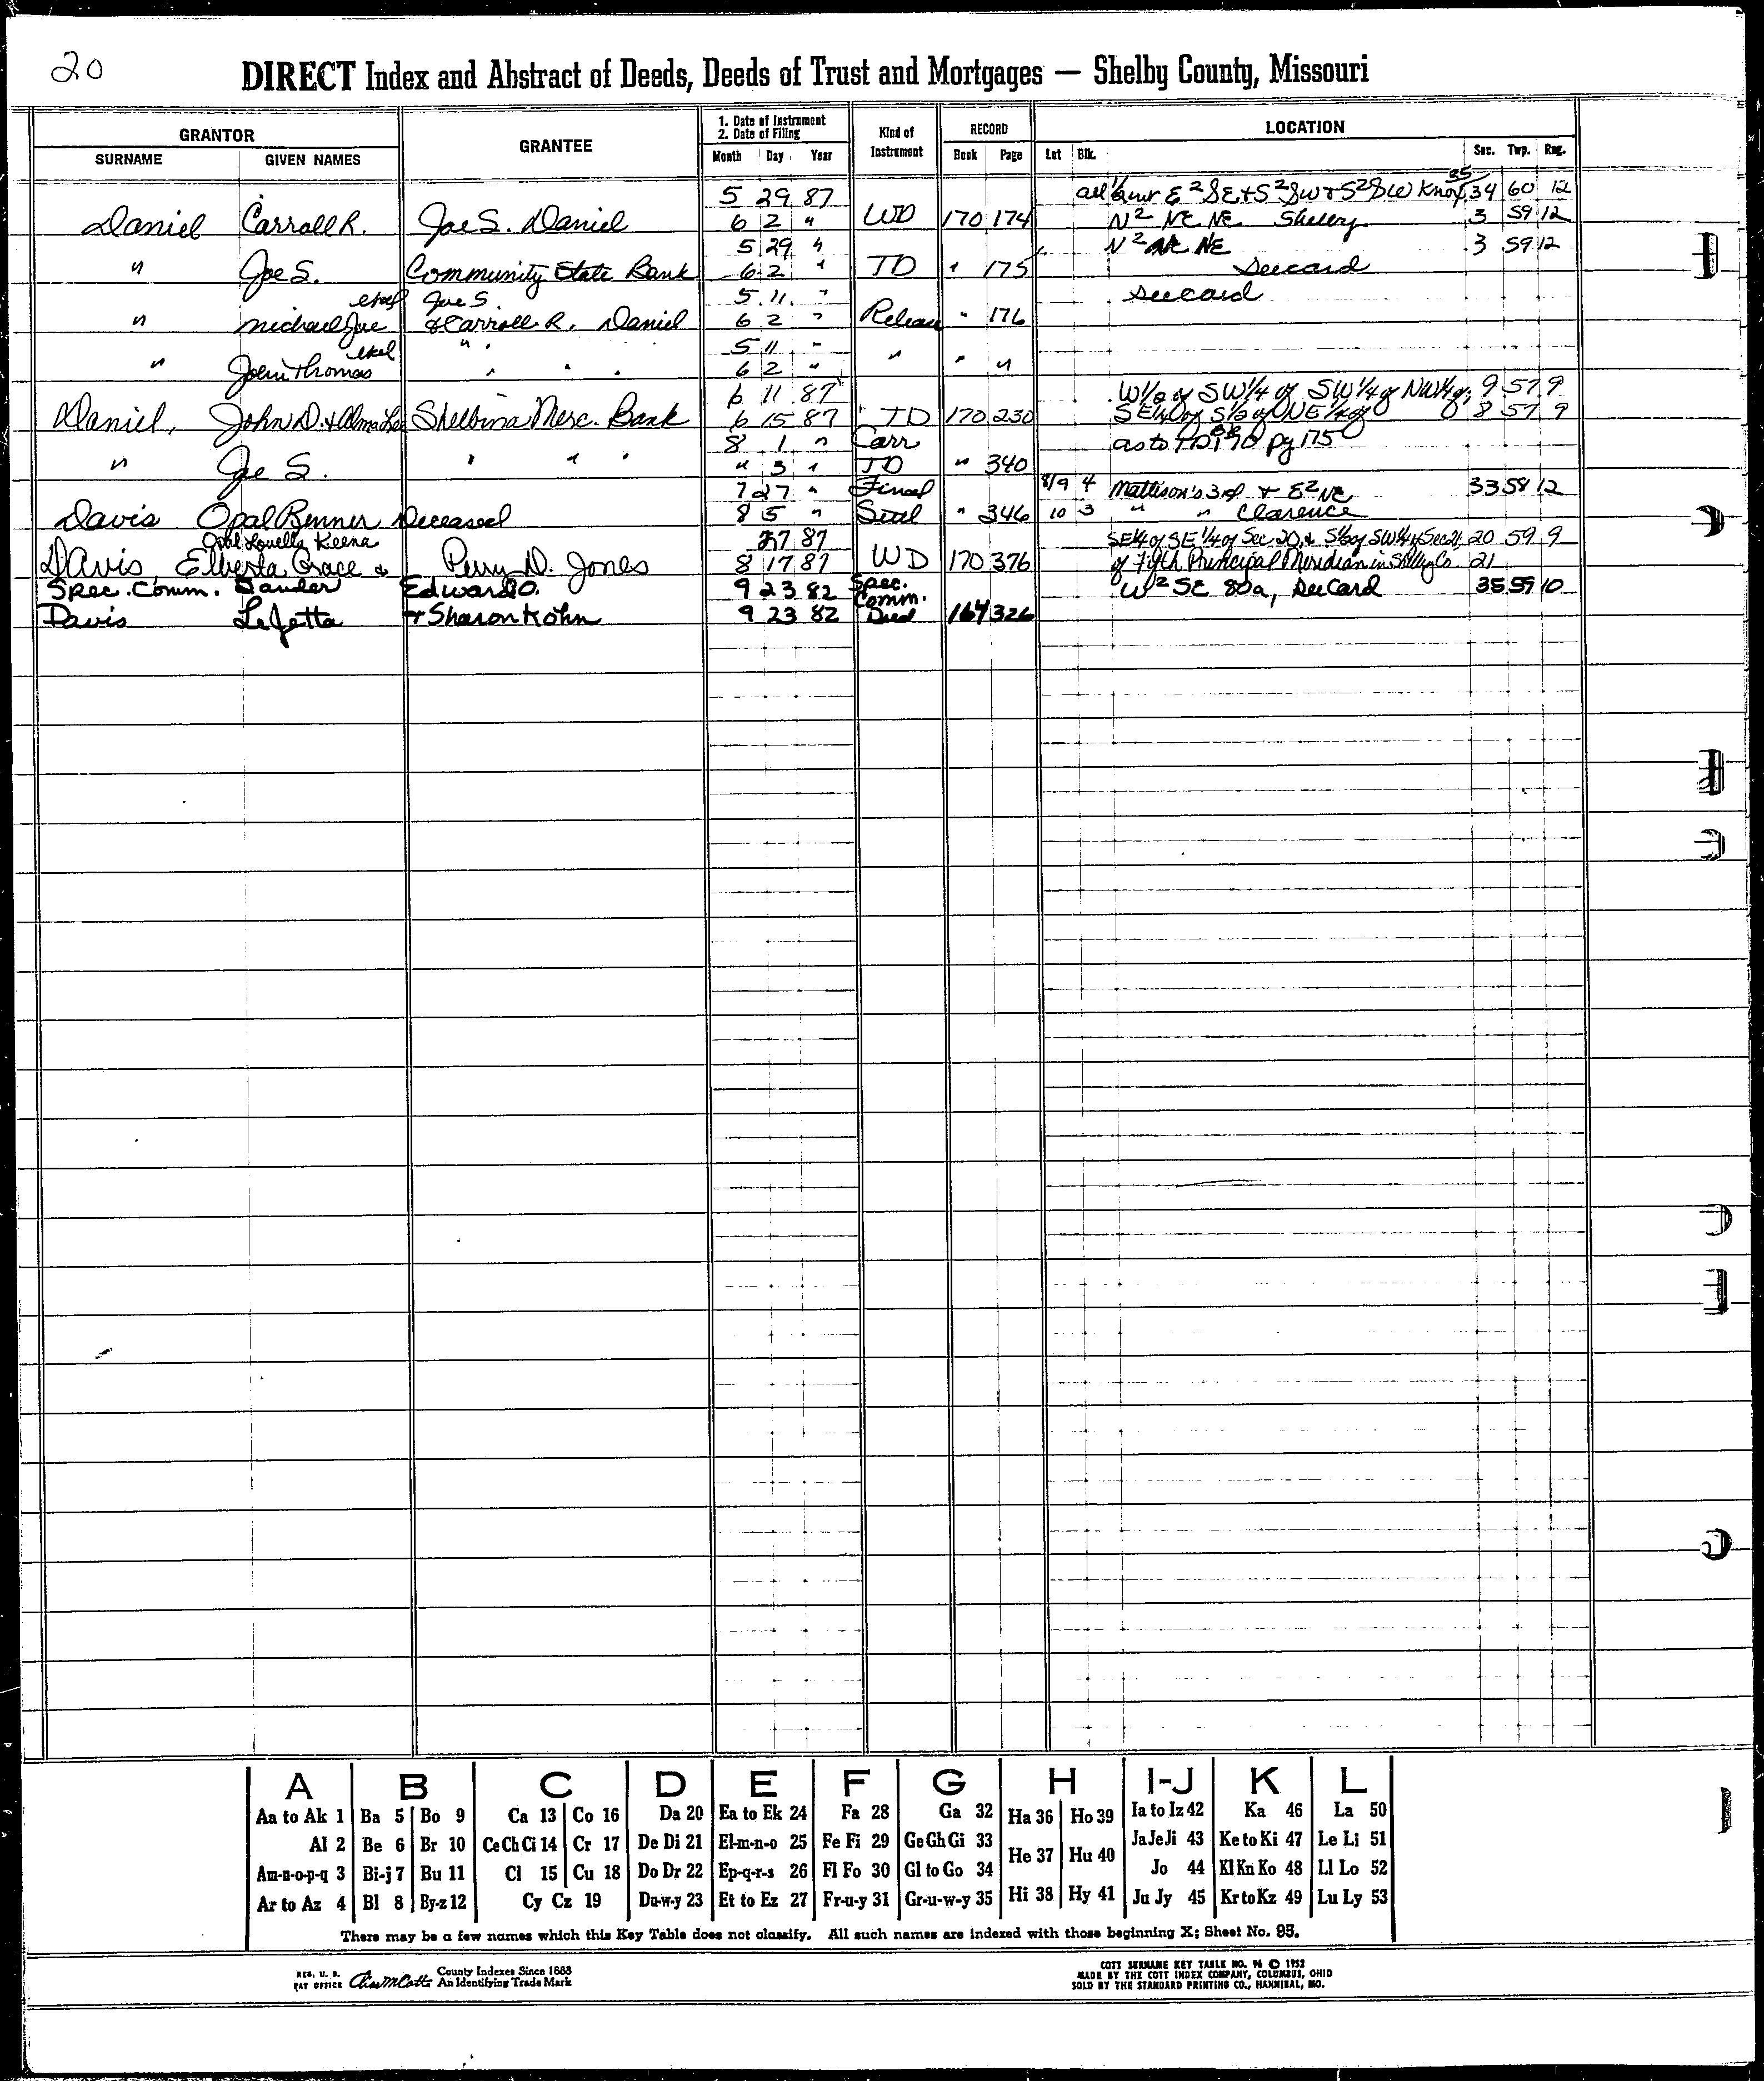 20
DIRECT Index and Abstract of Deeds, Deeds of Trust and Mortgages — Shelby County, Missouri
GRANTOR GRANTEE 1. Date of Instrument 2. Date of Filing Kind of Instrument RECORD LOCATION
SURNAME GIVEN NAMES Month Day Year Book Page Lot Blk. Sec. Twp. Rng.
5 29 87 E2 SE + S2 SW + S2 SW Knox 35 34 60 12
Daniel Carroll R. Joe S. Daniel 6 2 " WD 170 174 N2 NE NE Shelby 3 59 12
5 29 " N2 NE NE 3 59 12
" Joe S. Community State Bank 6 2 " TD " 175 see card
etal Joe S. 5 11 " see card
" Michael Joe & Carroll R. Daniel 6 2 " Release " 176
etal " 5 11 "
" John Thomas " " " 6 2 " " " "
6 11 87 W1/2 of SW1/4 of SW1/4 of NW1/4 of 9 57 9
Daniel, John D. & Alma Lee Shelbina Merc. Bank 6 15 87 TD 170 230 SE1/4 of S1/2 of NE1/4 of 8 57 9
8 1 " Corr as to TD Bk 170 pg 175
" Joe S. " " " " 3 " TD " 340
7 27 " Final 8/9 4 Mattison's 3rd + E2 NE 33 58 12
Davis Opal Benner Deceased 8 5 " Settl " 346 10 3 " " Clarence
Opal Louella Keena 87 SE1/4 of SE1/4 of Sec 20, & S1/2 of SW1/4 Sec 21, 20 59 9
Davis, Elberta Grace & Perry D. Jones 8 17 87 WD 170 376 of Fifth Principal Meridian in Shelby Co. 21
Spec. Comm. Sander Edward O. 9 23 82 Spec. Comm. W2 SE 80a, See Card 35 59 10
Davis LeJetta + Sharon Kohn 9 23 82 Deed 164 326
A B C D E F G H I-J K L
Aa to Ak 1 Ba 5 Bo 9 Ca 13 Co 16 Da 20 Ea to Ek 24 Fa 28 Ga 32 Ha 36 Ho 39 Ia to Iz 42 Ka 46 La 50
Al 2 Be 6 Br 10 Ce Ch Ci 14 Cr 17 De Di 21 El-m-n-o 25 Fe Fi 29 Ge Gh Gi 33 He 37 Hu 40 Ja Je Ji 43 Ke to Ki 47 Le Li 51
Am-n-o-p-q 3 Bi-j 7 Bu 11 Cl 15 Cu 18 Do Dr 22 Ep-q-r-s 26 Fl Fo 30 Gl to Go 34 Jo 44 Kl Kn Ko 48 Ll Lo 52
Ar to Az 4 Bl 8 By-z 12 Cy Cz 19 Du-w-y 23 Et to Ez 27 Fr-u-y 31 Gr-u-w-y 35 Hi 38 Hy 41 Ju Jy 45 Kr to Kz 49 Lu Ly 53
There may be a few names which this Key Table does not classify. All such names are indexed with those beginning X; Sheet No. 95.
REG. U. S. PAT OFFICE County Indexes Since 1888 An Identifying Trade Mark
COTT SURNAME KEY TABLE NO. 96 © 1952
MADE BY THE COTT INDEX COMPANY, COLUMBUS, OHIO
SOLD BY THE STANDARD PRINTING CO., HANNIBAL, MO.